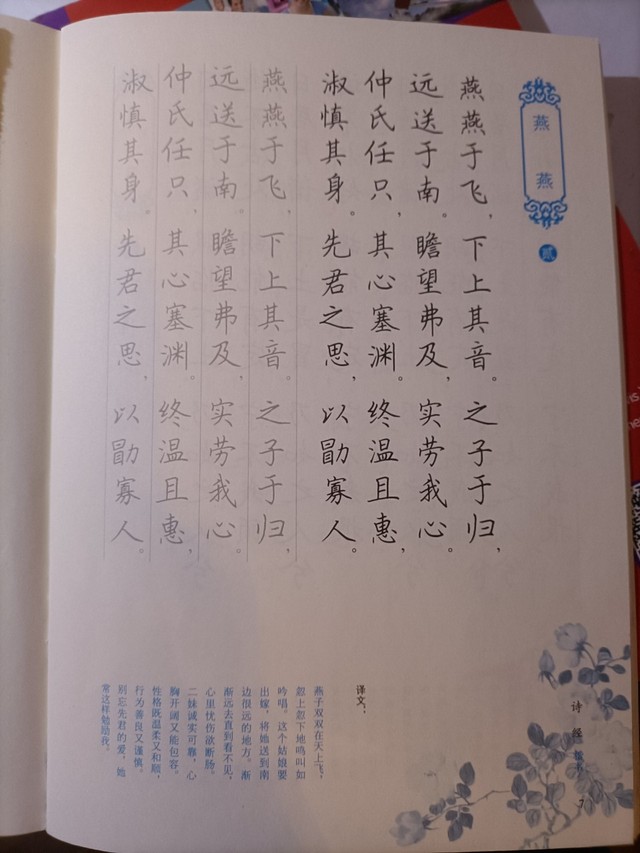 燕燕
贰
燕燕于飞，下上其音。之子于归，
远送于南。瞻望弗及，实劳我心。
仲氏任只，其心塞渊。终温且惠，
淑慎其身。先君之思，以勖寡人。
燕燕于飞，下上其音。之子于归，
远送于南。瞻望弗及，实劳我心。
仲氏任只，其心塞渊。终温且惠，
淑慎其身。先君之思，以勖寡人。
译文：
燕子双双在天上飞，
忽上忽下地鸣叫如
吟唱。这个姑娘要
出嫁，将她送到南
边很远的地方。渐
渐远去直到看不见，
心里忧伤欲断肠。
二妹诚实可靠，心
胸开阔又能包容。
性格既温柔又和顺，
行为善良又谨慎。
别忘先君的爱，她
常这样勉励我。
诗经
7